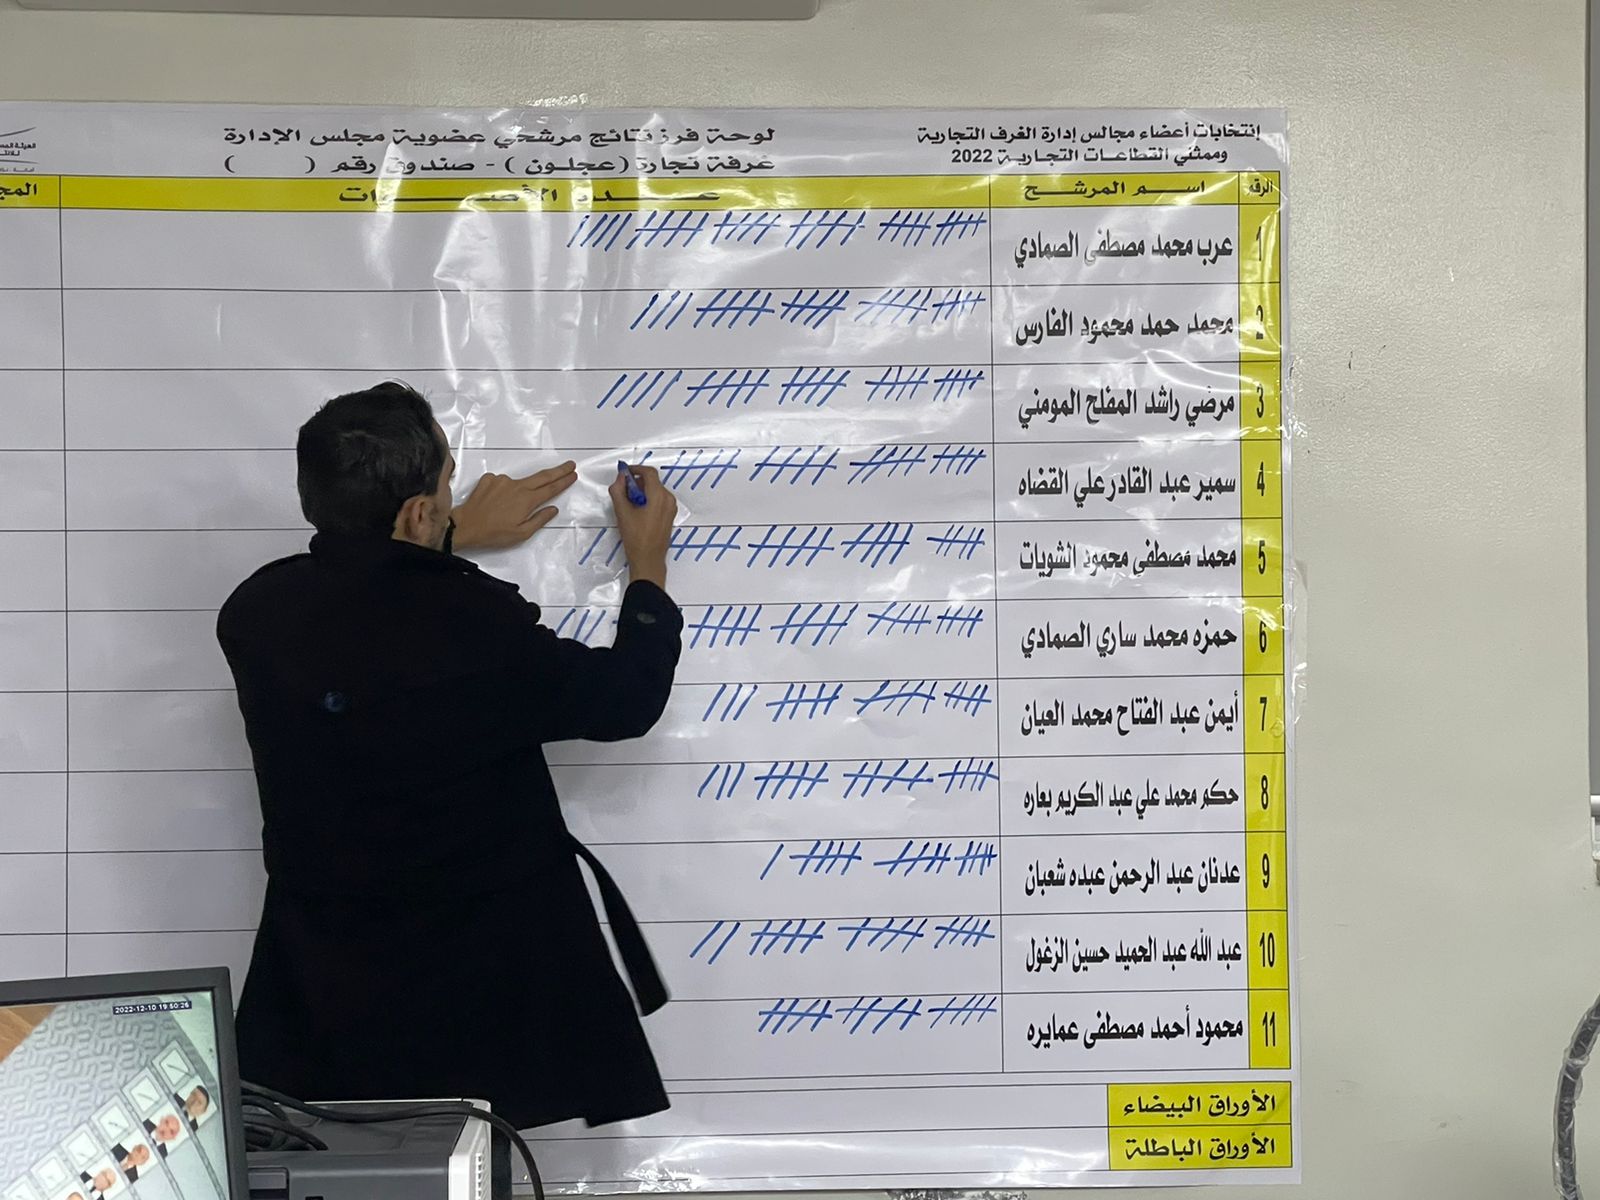 إنتخابات أعضاء مجالس إدارة الغرف التجارية
وممثلي القطاعات التجارية 2022
لوحة فرز نتائج مرشحي عضوية مجلس الإدارة
غرفة تجارة (عجلون) - صندوق رقم ( )
الرقم اسم المرشح عدد الأصوات
1 عرب محمد مصطفى الصمادي
2 محمد حمد محمود الفارس
3 مرضي راشد المفلح المومني
4 سمير عبد القادر علي القضاه
5 محمد مصطفى محمود الشويات
6 حمزه محمد ساري الصمادي
7 أيمن عبد الفتاح محمد العيان
8 حكم محمد علي عبد الكريم بعاره
9 عدنان عبد الرحمن عبده شعبان
10 عبد الله عبد الحميد حسين الزغول
11 محمود أحمد مصطفى عمايره
الأوراق البيضاء
الأوراق الباطلة
2022-12-10 19:50:26